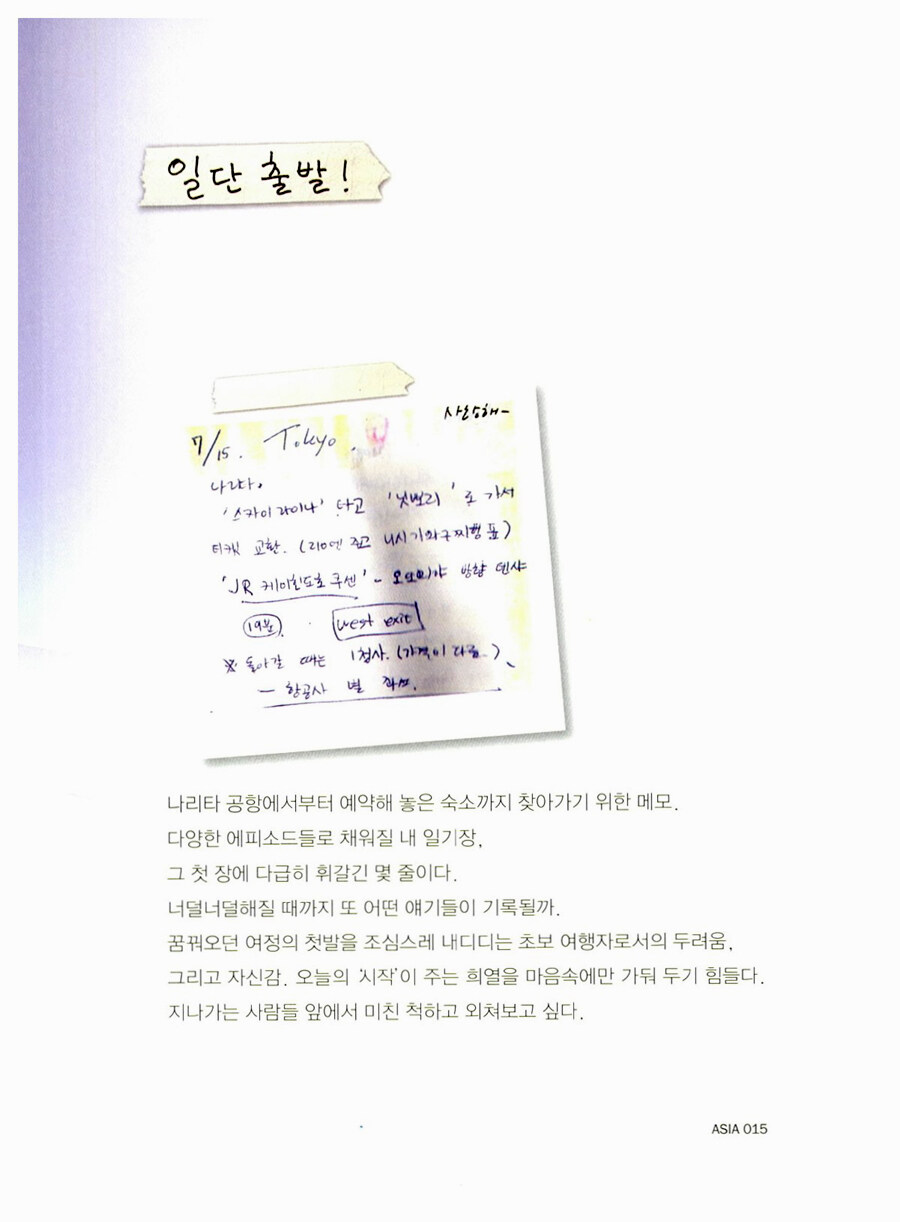 일단 출발!
사랑해~
7/15. Tokyo.
나리타.
'스카이라이나' 타고 '닛뽀리'로 가서
티켓 교환. (210엔 주고 니시기와구찌행 표)
'JR 케이힌도호쿠센' - 오오미야 방향 덴샤
19분. west exit
※ 돌아갈 때는 1청사. (가격이 다름.)
- 항공사 별
나리타 공항에서부터 예약해 놓은 숙소까지 찾아가기 위한 메모.
다양한 에피소드들로 채워질 내 일기장,
그 첫 장에 다급히 휘갈긴 몇 줄이다.
너덜너덜해질 때까지 또 어떤 얘기들이 기록될까.
꿈꿔오던 여정의 첫발을 조심스레 내디디는 초보 여행자로서의 두려움,
그리고 자신감. 오늘의 '시작'이 주는 희열을 마음속에만 가둬 두기 힘들다.
지나가는 사람들 앞에서 미친 척하고 외쳐보고 싶다.
ASIA 015